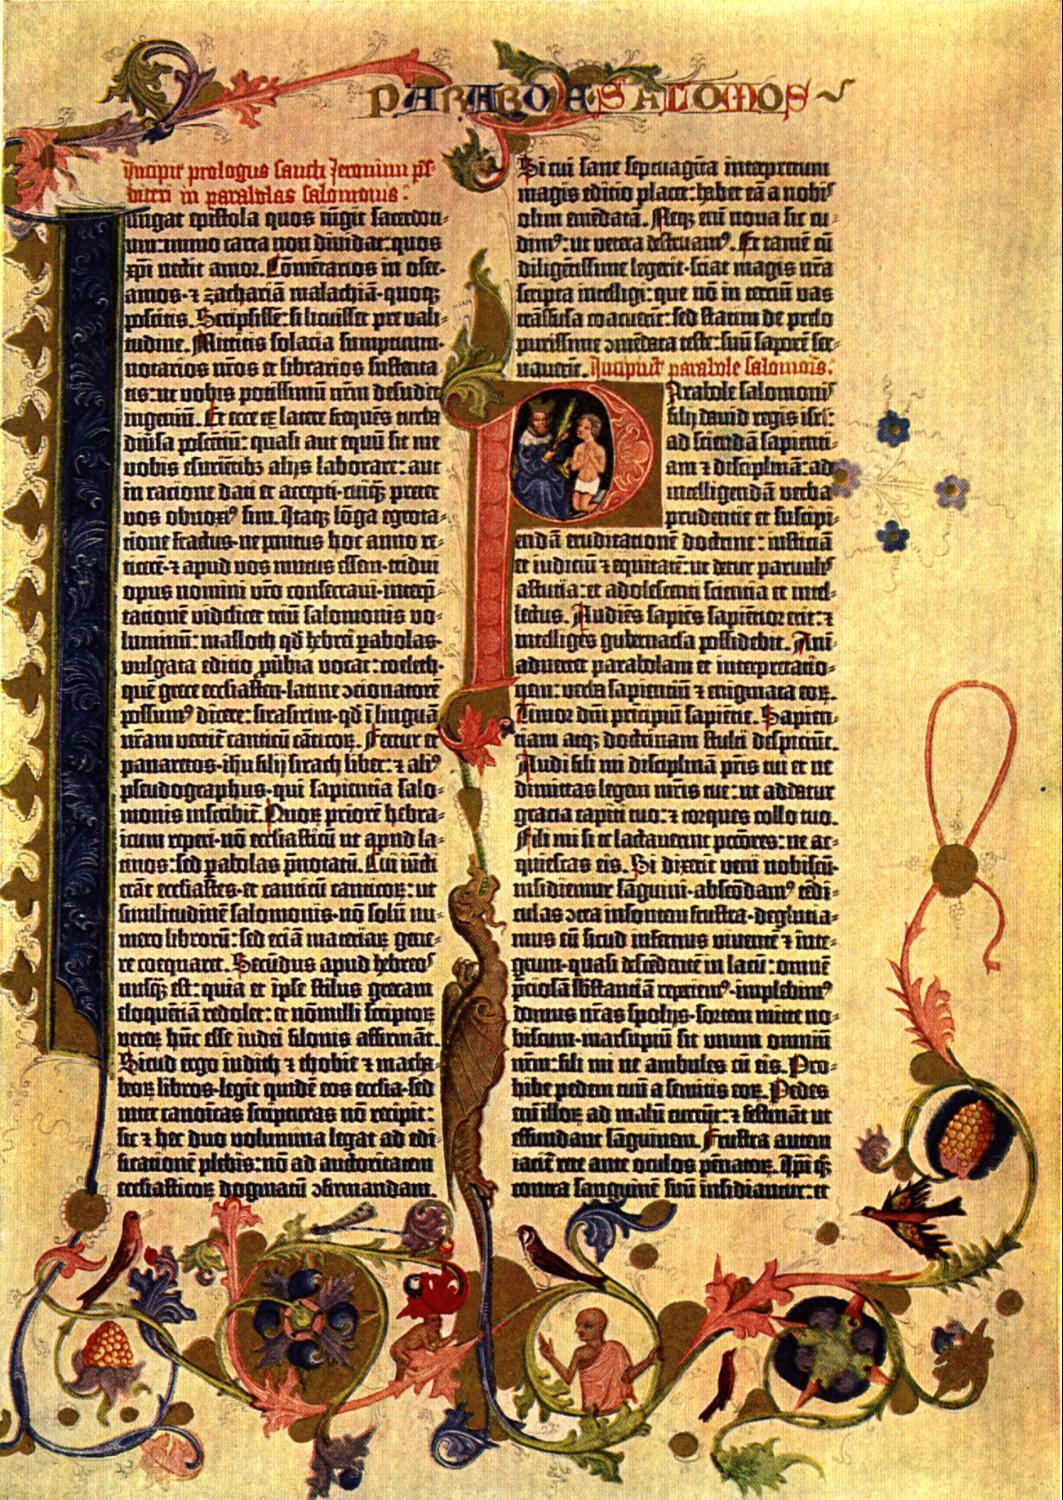 PARABOLE SALOMOIS
Incipit prologus sancti Jeronimi p̄s-
biteri in parabolas salomonis.
Iungat epistola quos iūgit sacerdoti-
um: immo carta non dividat: quos
xp̄i nectit amor. Cōmētarios in osee-
amos ⁊ zachariā malachiā quoq;
poscitis. Scripsissē: si licuisset pre vali-
tudine. Mittitis solacia sumptuum-
notarios nr̄os et librarios sustenta-
tis: ut vobis potissimū nr̄m desudet
ingeniū. Et ecce ex latere frequēs turba
diūsa poscētiū: quasi aut equū sit me
vobis esurietībꝫ alijs laborare: aut
in racione dati et accepti- cuiq̄ preter
vos obnoxiꝰ sim. Itaq; lōga egrota-
tione fractus- ne penitus hoc anno re-
ticerē- ⁊ apud vos mutus essem- tridui
opus nomini vr̄o consecraui- interp̄-
tationē videlicet triū salomonis vo-
luminū: masloth qd̄ hebrei pabolas-
vulgata editio ꝓūbia vocat: coeleth-
quē grece ecclesiasten- latine ↄcionatorē
possumꝰ dicere: sirasirim- qd̄ ī linguā
nr̄am vertit̄ canticū cāticoꝝ. Fertur et
panaretos- ihu filij sirach liber: ⁊ aliꝰ
pseudographus- qui sapientia salo-
monis inscribit̄. Quoꝝ priorē hebra-
icum reperi- nō ecclesiasticū ut apud la-
tinos: sed pabolas p̄notatū. Cui iūcti
erāt ecclesiastes et canticū canticoꝝ: ut
similitudinē salomonis- nō solū nu-
mero libroꝝ: sed eciā materiaꝝ gene-
re coequaret. Secūdus apud hebreos
nusq̄ est: quia et ipse stilus grecam
eloquētiā redolet: et nōnulli scriptoꝝ
veteꝝ hūc esse iudei filonis affirmāt.
Sicud ergo iudith ⁊ thobie ⁊ macha-
beoꝝ libros- legit quidē eos ecclesia- sed
inter canonicas scripturas nō recipit:
sic ⁊ hec duo volumina legat ad edi-
ficationē plebis: nō ad auctoritatem
ecclesiasticoꝝ dogmatū ↄfirmandam.
Si cui sane septuagīta interpretum
magis editio placet: habet eā a nobis
olim emēdatā. Neq; enī noua sic cu-
dimꝰ: ut vetera destruamꝰ. Et tamē cū
diligētissime legerit- sciat magis nr̄a
scripta intelligi: que nō in terciū vas
trāsfusa coacuerīt: sed statim de prelo
purissime ↄmēdata teste: suū saporē ser-
uauerīt. Incipiūt parabole salomonis.
Parabole salomonis
filij dauid regis isrl̄:
ad sciendā sapienti-
am ⁊ disciplinā: ad
intelligendā verba
prudentie et suscipi-
endā eruditationē doctrine: iusticiā
et iudiciū ⁊ equitatē: ut detur paruulis
astutia: et adolescenti sciencia et intel-
lectus. Audiēs sapiēs sapiētior erit: ⁊
intelligēs gubernacla possidebit. Ani-
aduertet parabolam et interpretatio-
nem: verba sapientiū ⁊ enigmata eoꝝ.
Timor dn̄i prīcipiū sapiētie. Sapien-
tiam atq; doctrinam stulti despiciūt.
Audi fili mi disciplinā pr̄is tui et ne
dimittas legem mr̄is tue: ut addatur
gracia capiti tuo: ⁊ torques collo tuo.
Fili mi si te lactauerint pctōres: ne ac-
quiescas eis. Si dixerīt veni nobiscū-
insidiemur sāguini- abscōdamꝰ tēdi-
culas ↄtra insontem frustra- deglutia-
mus eū sicud infernus viuentē ⁊ inte-
grum- quasi descēdentē in lacū: omnē
p̄ciosā substantiā reperiemꝰ- implebimꝰ
domus nr̄as spolijs- sortem mitte no-
biscum- marsupiū sit vnum omniū
nr̄m: fili mi ne ambules cū eis. Pro-
hibe pedem tuū a semitis eoꝝ. Pedes
enī illoꝝ ad malū currūt: ⁊ festināt ut
effundant sāguinem. Frustra autem
iacit̄ rete ante oculos pēnatoꝝ. Ipi q̄ꝫ
contra sanguinē suū insidiantur: et